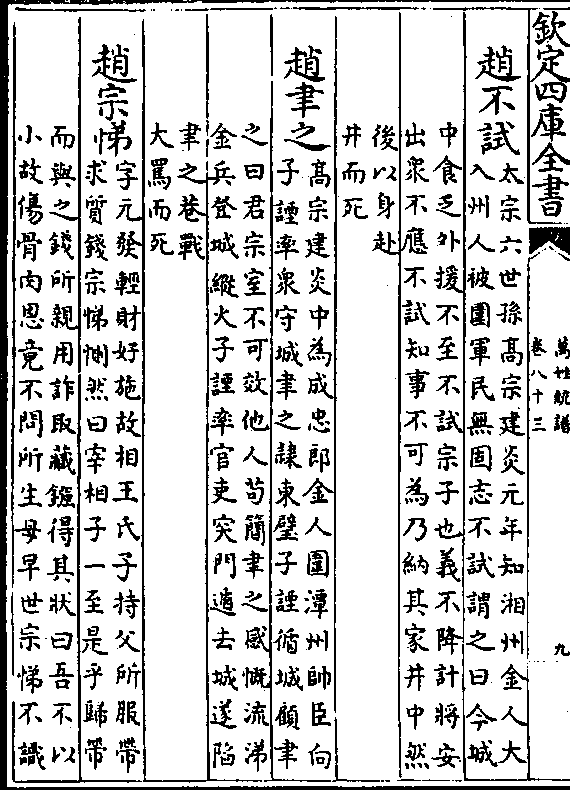 欽定四庫全書
萬姓統譜
卷八十三
九
趙不試
太宗六世孫高宗建炎元年知湘州金人大
入州人被圍軍民無固志不試謂之曰今城
中食乏外援不至不試宗子也義不降計將安
出衆不應不試知事不可為乃納其家井中然
後以身赴
井而死
趙聿之
高宗建炎中為成忠郎金人圍潭州帥臣向
子諲率衆守城聿之隷東壁子諲循城顧聿
之曰君宗室不可效他人苟簡聿之感慨流涕
金兵登城縱火子諲率官吏突門遁去城遂陷
聿之巷戰
大罵而死
趙宗悌
字元發輕財好施故相王氏子持父所服帶
求質錢宗悌惻然曰宰相子一至是乎歸帶
而與之錢所親用詐取藏鏹得其狀曰吾不以
小故傷骨肉恩竟不問所生母早世宗悌不識